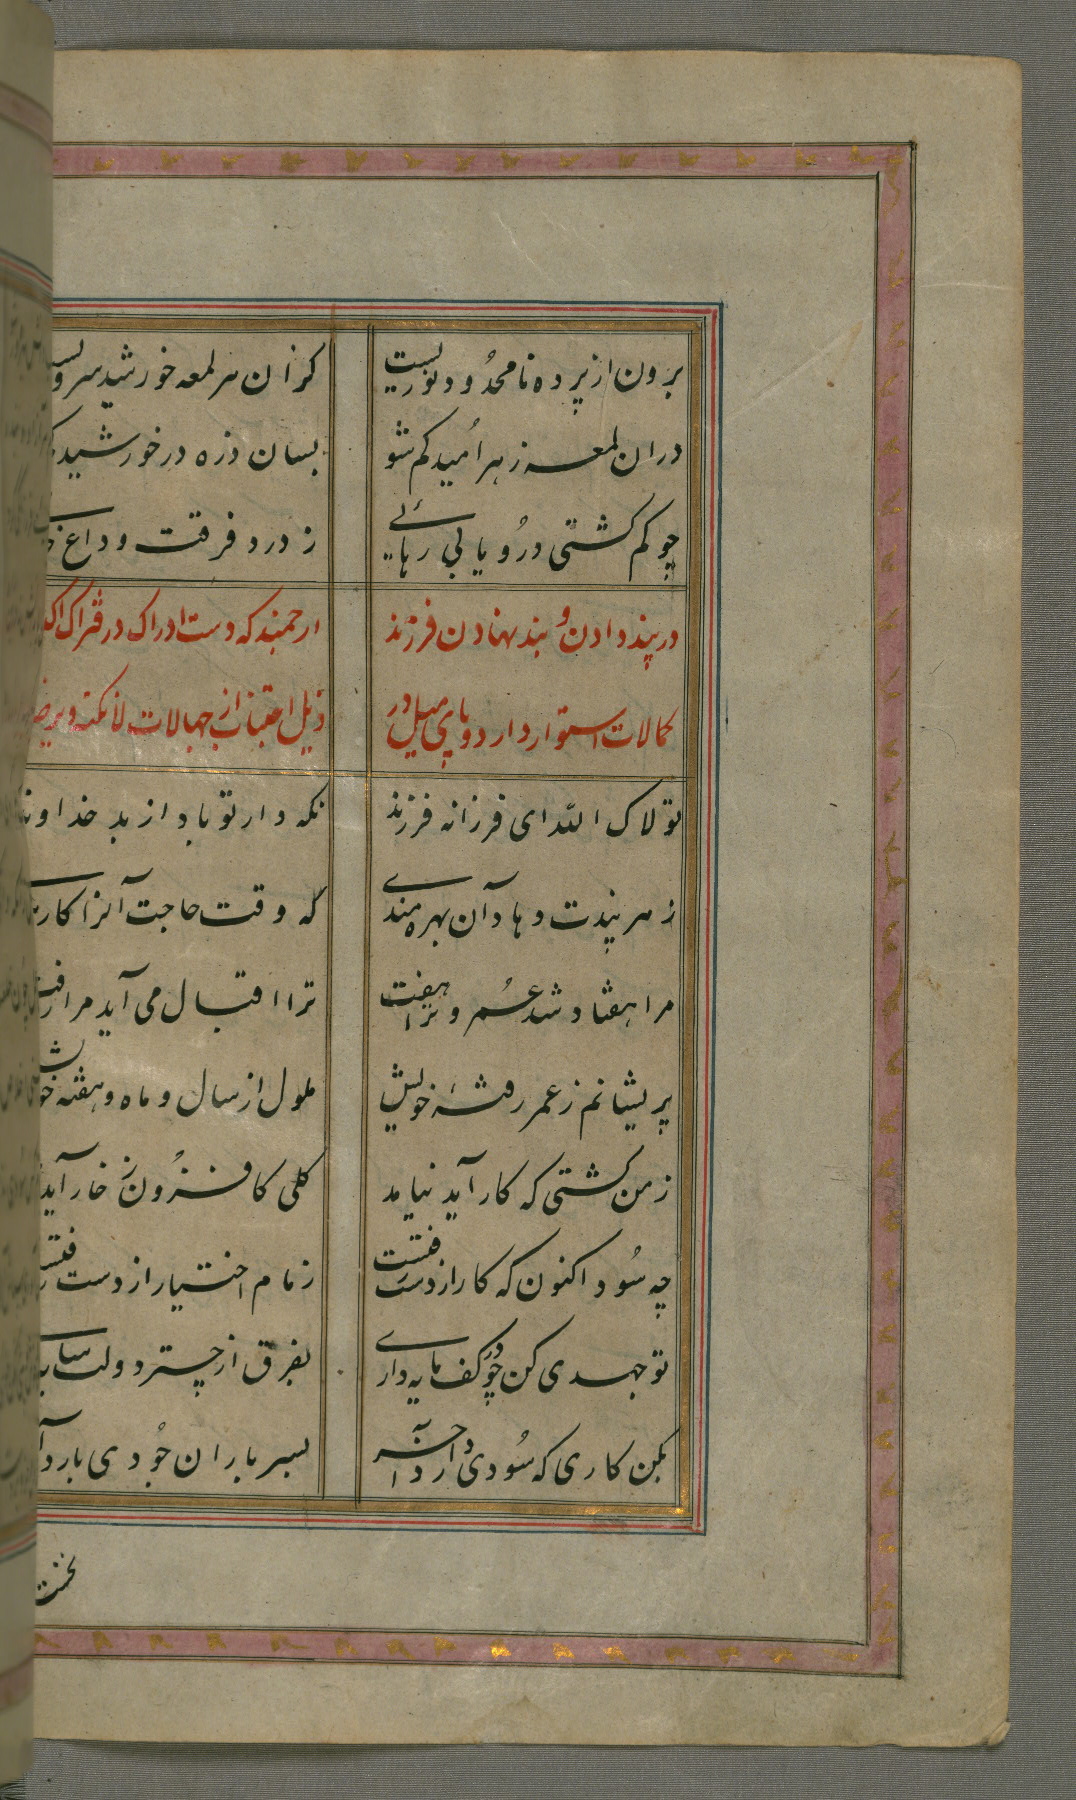 برون از پرده نامحدود نوریست کزان هر لمعه خورشید سرو
دران لمعه ز هر امید کم شو بسان ذره در خورشید
چو کم کشتی درو یابی رهائی ز درد فرقت و داغ
در پند دادن و بند نهادن فرزند ارجمند که دست ادراک در فتراک
کمالات استوار دارد و پای میل در ذیل اجتناب از جهالات
تولاک الله ای فرزانه فرزند نکه دار تو باد از بد خداوند
ز هر پندت دهاد آن بهره مندی که وقت حاجت آنرا کار
مرا هفتاد شد عمر و ترا هفت ترا اقبال می آید مرا رفت
پریشانم ز عمر رفته خویش ملول از سال و ماه و هفته خویش
ز من کشتی که کار آید نیامد کلی کافزون ز خار آید
چه سود اکنون که کار از دست رفتست زمام اختیار از دست رفتست
تو جهدی کن چو در کف مایه داری بفرق از چتر دولت سایه
بکن کاری که سودی دارد آخر بسر باران جودی بارد
نخست